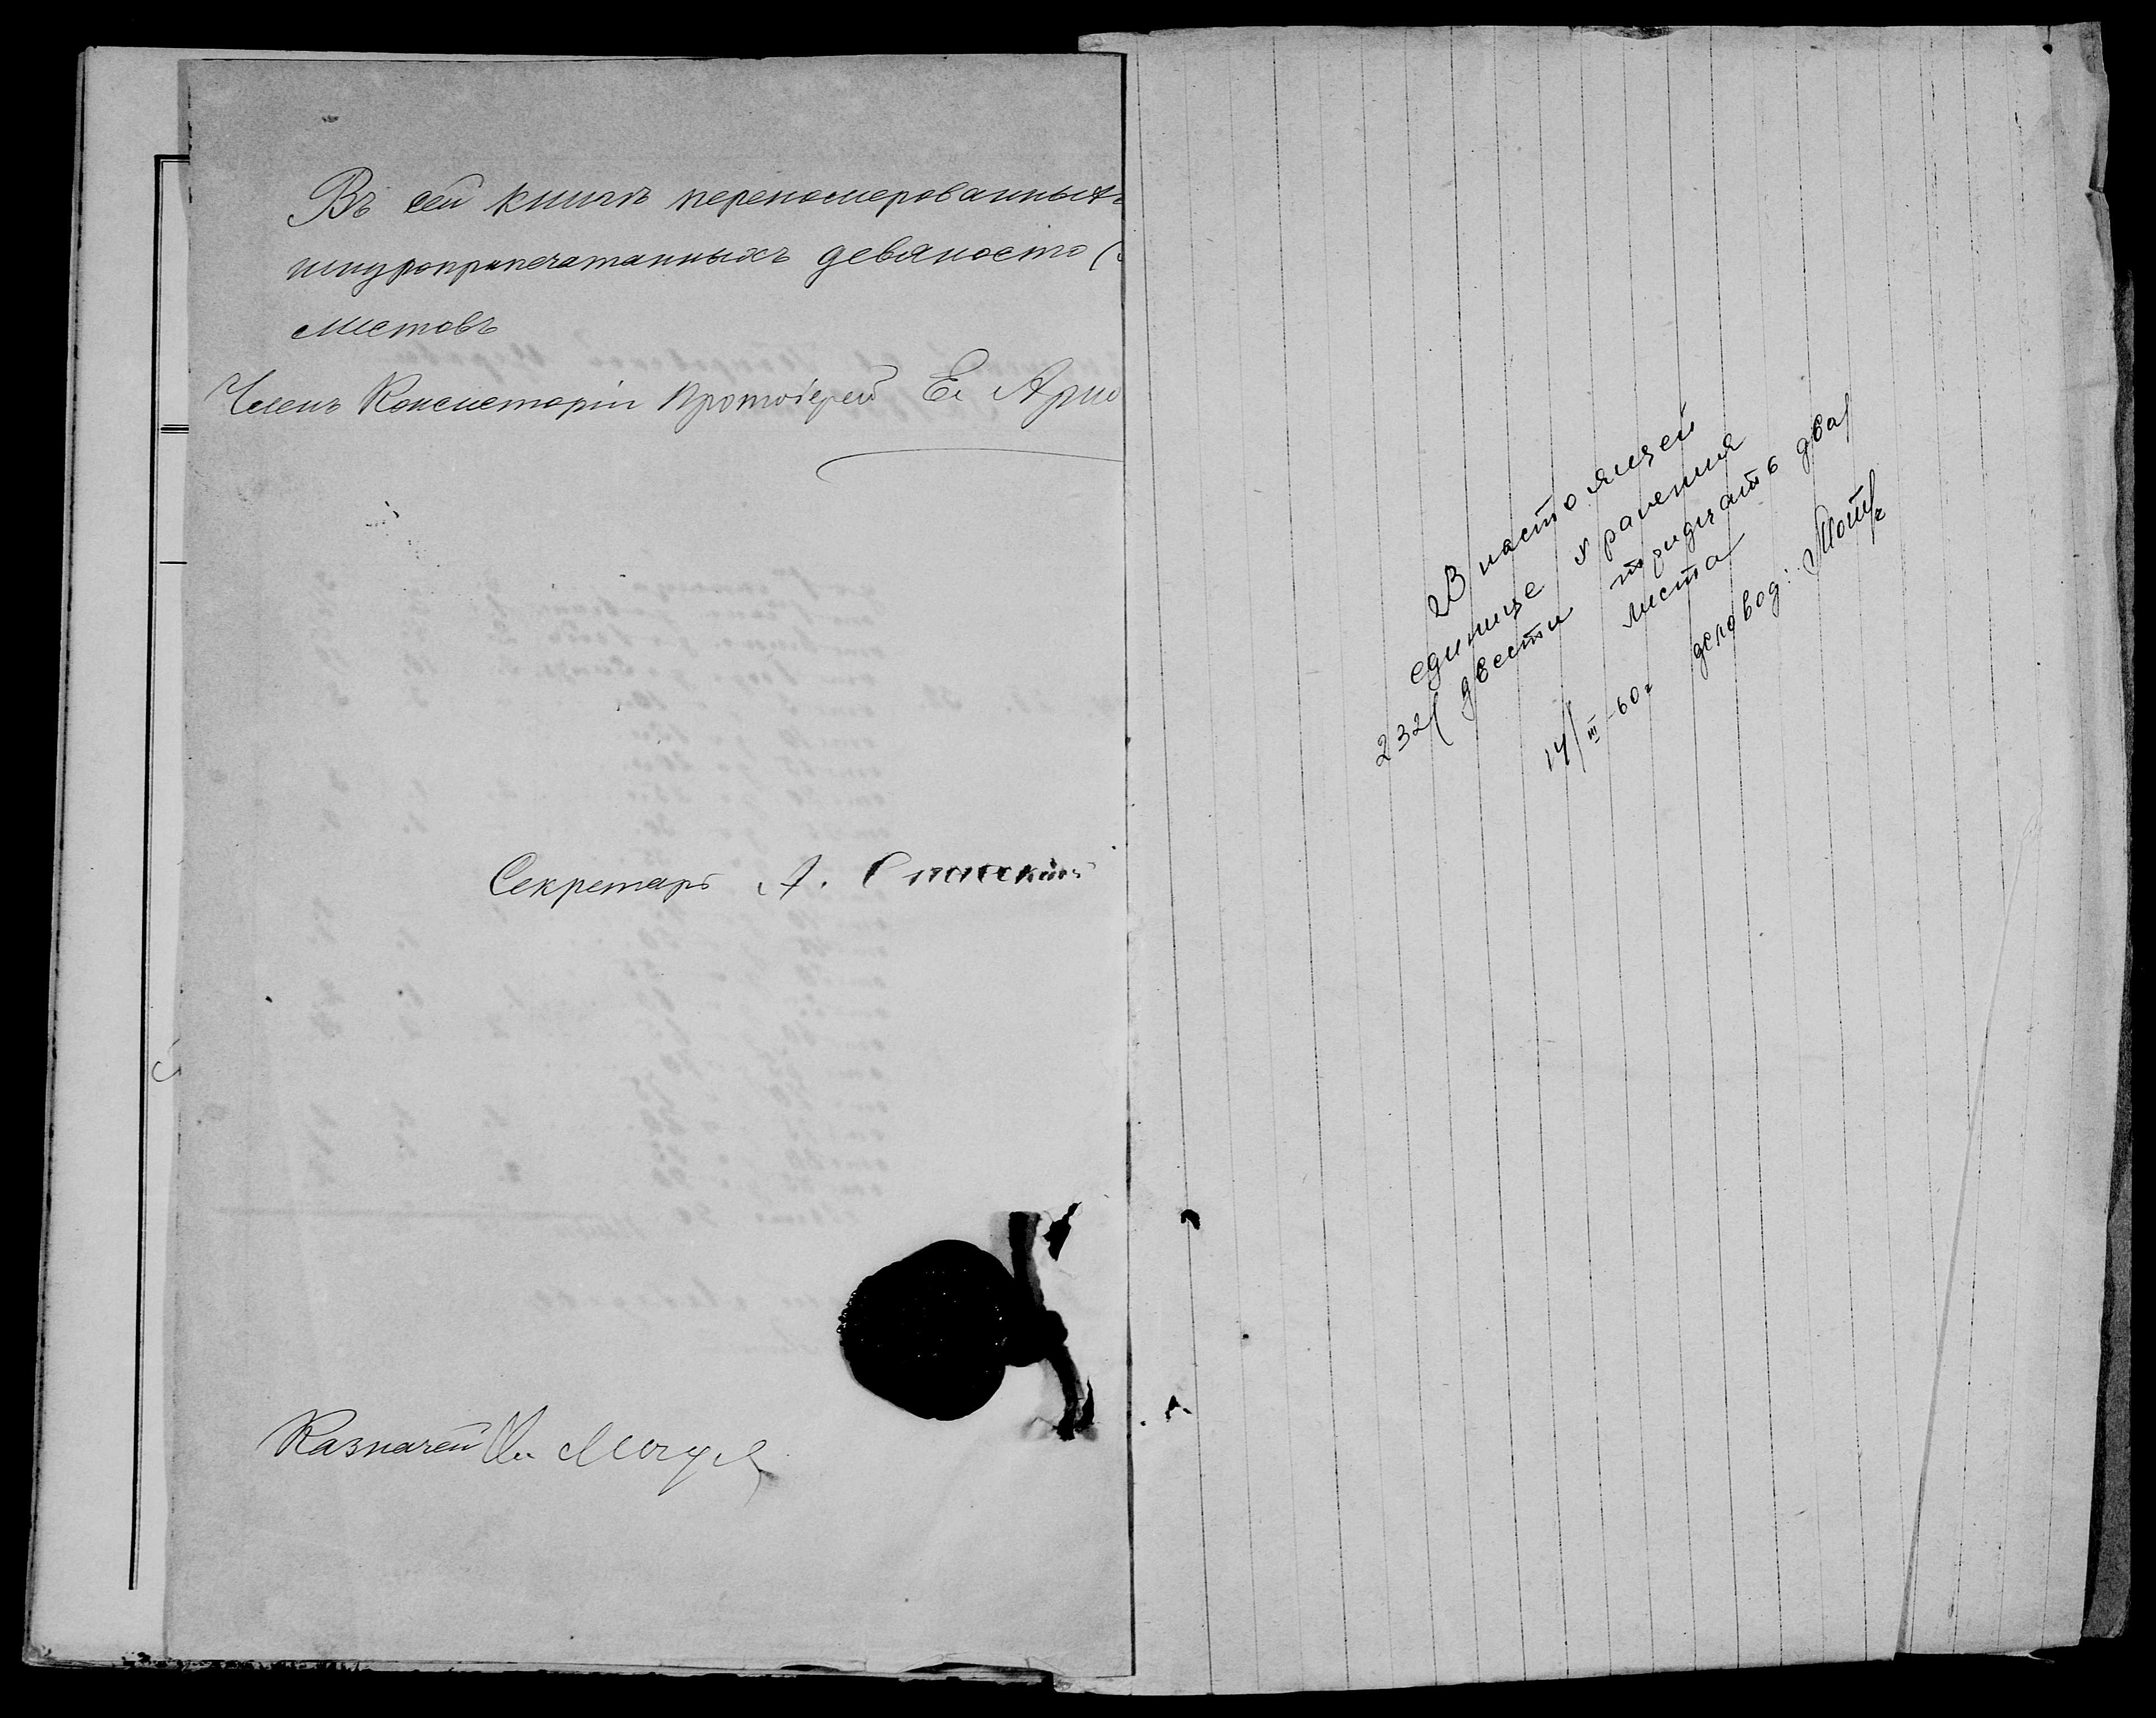 Въ сей книгѣ переномерованныхъ
шнуроприпечатанныхъ девяносто (
листовъ
Членъ Консисторіи Протоіерей Е.
Секретарь А.
Казначей
В настоящей
единице хранения
232( двести тридцать два)
листа
14/III-60г деловод: